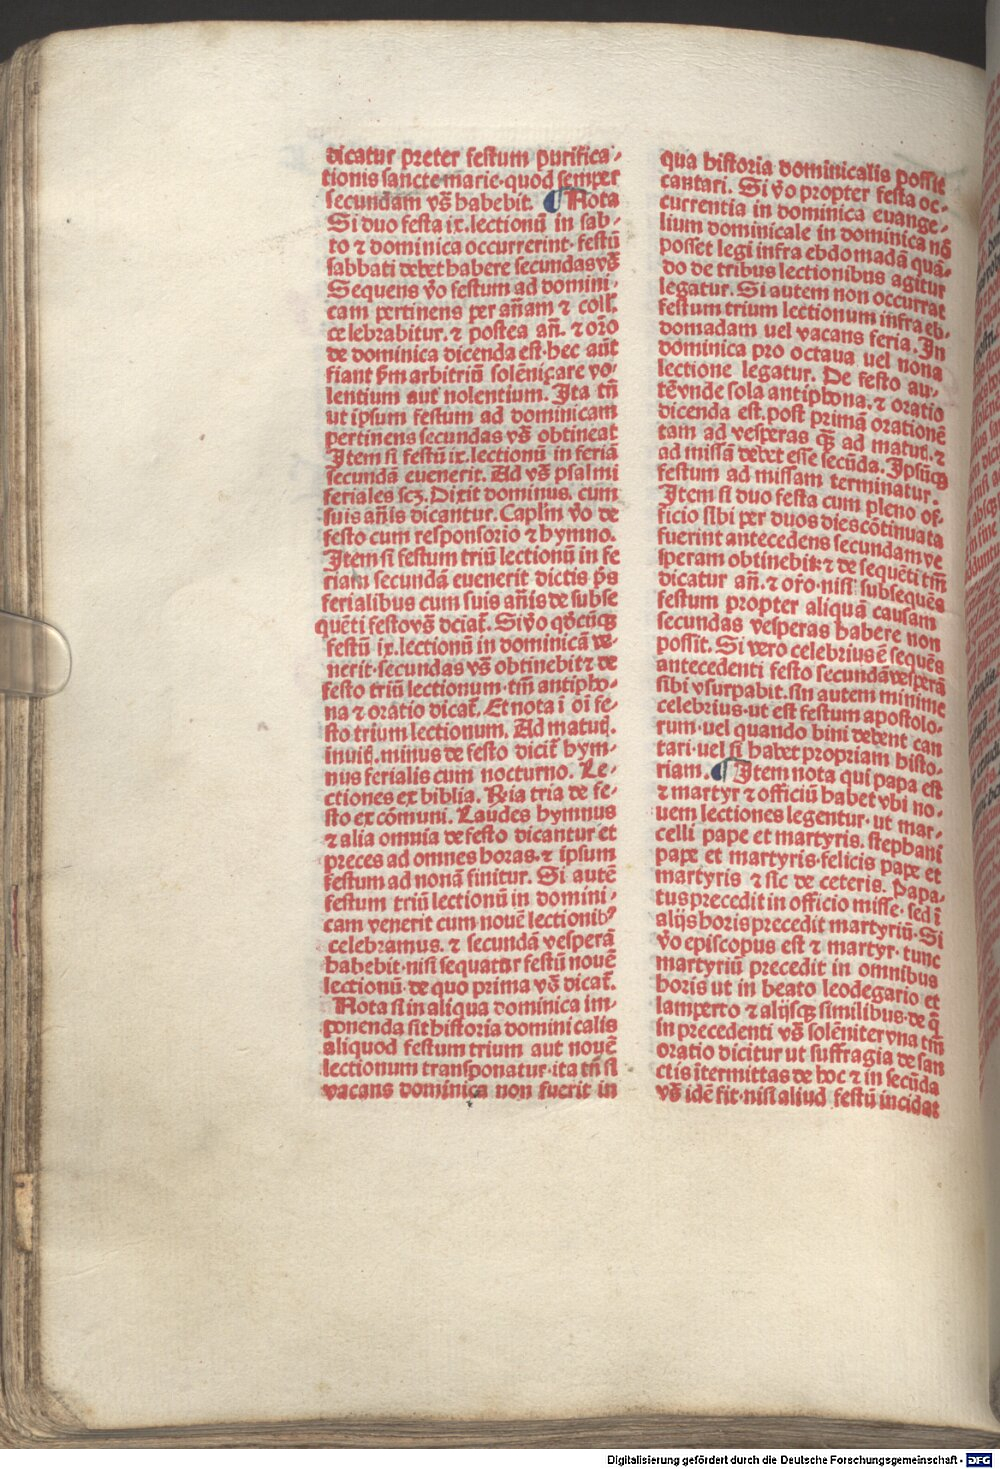 dicatur preter festum purifica-
tionis sancte marie·quod semper
secundam vs̄ habebit. ¶ Nota
Si duo festa ix.lectionū in sab-
to ⁊ dominica occurrerint· festū
sabbati debet habere secundas vs̄
Sequens v̄o festum ad domini-
cam pertinens per añam ⁊ coll̄.
celebrabitur. ⁊ postea añ. ⁊ or̄o
de dominica dicenda est·hec aūt
fiant s̄m arbitriū solēniçare vo-
lentium aut nolentium. Ita tn̄
ut ipsum festum ad dominicam
pertinens secundas vs̄ obtineat
Item si festū ix.lectionū in feriā
secundā euenerit. Ad vs̄ psalmi
feriales scʒ. Dixit dominus. cum
suis añis dicantur. Capl̄m v̄o de
festo cum responsorio ⁊ hymno.
Item si festum triū lectionū in fe
riam secundā euenerit dictis p̄s
ferialibus cum suis añis de subse
quēti festo vs̄ dciat̄. Si v̄o qd̄cūqꝫ
festū ix.lectionū in dominicā ve-
nerit·secundas vs̄ obtinebit ⁊ de
festo triū lectionum·tm̄ antipho-
na ⁊ oratio dicat̄. Et nota ī oī fe-
sto trium lectionum. Ad matut̄.
inuit̄. minus de festo dicit̄ hym-
nus ferialis cum nocturno. Le-
ctiones ex biblia. R̄ia tria de fe-
sto ex cōmuni. Laudes hymnus
⁊ alia omnia de festo dicantur et
preces ad omnes horas. ⁊ ipsum
festum ad nonā finitur. Si autē
festum triū lectionū in domini-
cam venerit cum nouē lectionibꝰ
celebramus. ⁊ secundā vesperā
habebit·nisi sequatur festū nouē
lectionū· de quo prima vs̄ dicat̄.
Nota si in aliqua dominica im-
ponenda sit historia dominicalis
aliquod festum trium aut nouē
lectionum transponatur·ita tn̄ si
vacans dominica non fuerit in
qua historia dominicalis possit
cantari. Si v̄o propter festa oc-
currentia in dominica euange-
lium dominicale in dominica nō
posset legi infra ebdomadā quā-
do de tribus lectionibus agitur
legatur. Si autem non occurrat
festum trium lectionum infra eb-
domadam uel vacans feria. In
dominica pro octaua uel nona
lectione legatur. De festo au-
tē vnde sola antiphona. ⁊ oratio
dicenda est. post primā orationē
tam ad vesperas q̄ꝫ ad matut̄. ⁊
ad missā debet esse secūda. Ipsūqꝫ
festum ad missam terminatur.
Item si duo festa cum pleno of-
ficio sibi per duos dies cōtinuata
fuerint antecedens secundam ve
speram obtinebit·⁊ de sequēti tm̄
dicatur añ. ⁊ or̄o·nisi subsequēs
festum propter aliquā causam
secundas vesperas habere non
possit. Si vero celebrius ē sequēs
antecedenti festo secundā vesperā
sibi vsurpabit. sin autem minime
celebrius·ut est festum apostolo-
rum·uel quando bini debent can
tari·uel si habet propriam histo-
riam. ¶ Item nota qui papa est
⁊ martyr ⁊ officiū habet vbi no-
uem lectiones legentur· ut mar-
celli pape et martyris. stephani
pape et martyris·felicis pape et
martyris ⁊ sic de ceteris. Papa-
tus precedit in officio misse· sed ī
alijs horis precedit martyriū. Si
v̄o episcopus est ⁊ martyr· tunc
martyriū precedit in omnibus
horis ut in beato leodegario et
lamperto ⁊ alijsqꝫ similibus·de q̄
in precedenti vs̄ solēniter vna tm̄
oratio dicitur ut suffragia de san
ctis ītermittas de hoc ⁊ in secūda
vs̄ idē fit·nisi aliud festū incidat
Digitalisierung gefördert durch die Deutsche Forschungsgemeinschaft - DFG